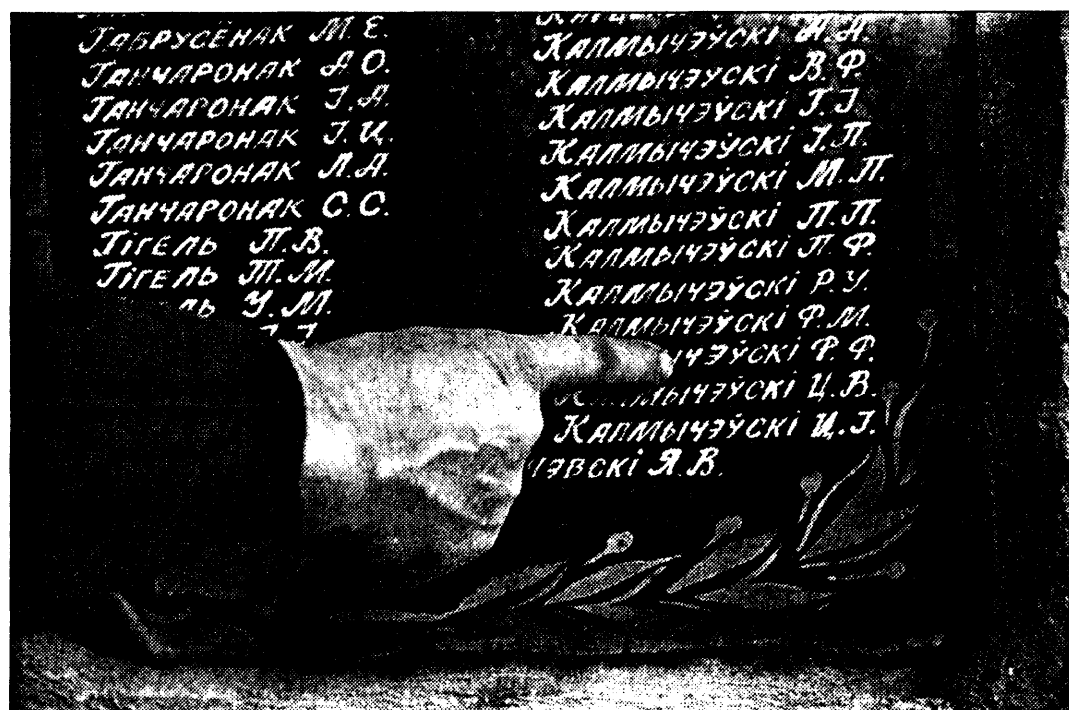 Габрусёнак М. Е.
Ганчаронак А. О.
Ганчаронак І. А.
Ганчаронак І. Ц.
Ганчаронак Л. А.
Ганчаронак С. С.
Гігель П. В.
Гігель Т. М.
ль У. М.
Калмычэўскі А. А.
Калмычэўскі В. Ф.
Калмычэўскі Г. І.
Калмычэўскі І. П.
Калмычэўскі М. П.
Калмычэўскі П. П.
Калмычэўскі П. Ф.
Калмычэўскі Р. У.
Калмычэўскі Ф. М.
ычэўскі Ф. Ф.
Калмычэўскі Ц. В.
Калмычэўскі Ц. І.
чэвскі Я. В.